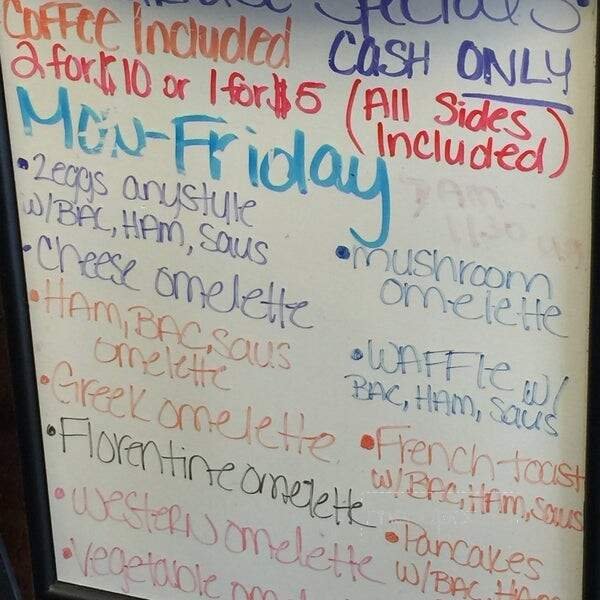 Specials
Coffee Included CASH ONLY
2 for $10 or 1 for $5 (All Sides Included)
MON-Friday
•2eggs anystyle
w/BAC, HAM, Saus
•Cheese omelette
•HAM, BAC, Saus
omelette
•Greek omelette
•Florentine omelette
•Western omelette
•Vegetable
•mushroom
omelette
•WAFFle w/
BAC, HAM, Saus
•French-toast
w/BAC, HAM, Saus
•Pancakes
w/BAC,